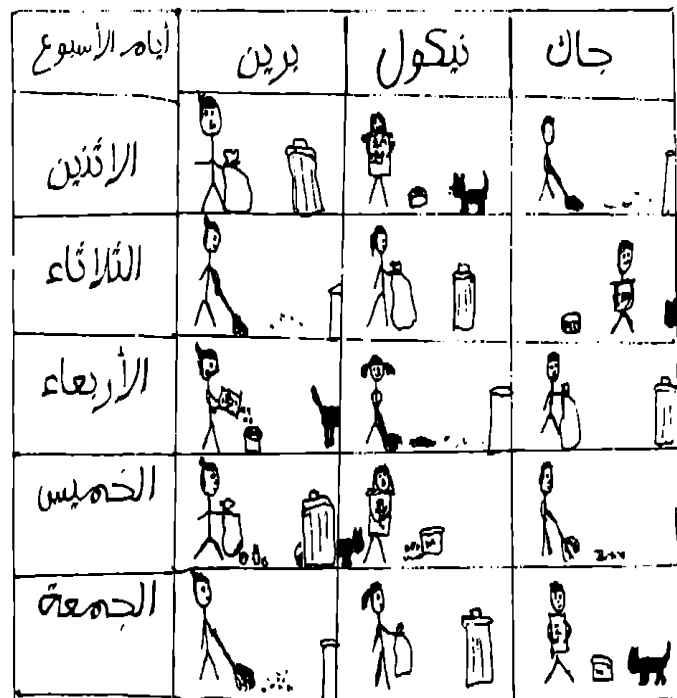 أيام الأسبوع برين نيكول جاك
الاثنين
الثلاثاء
الأربعاء
الخميس
الجمعة